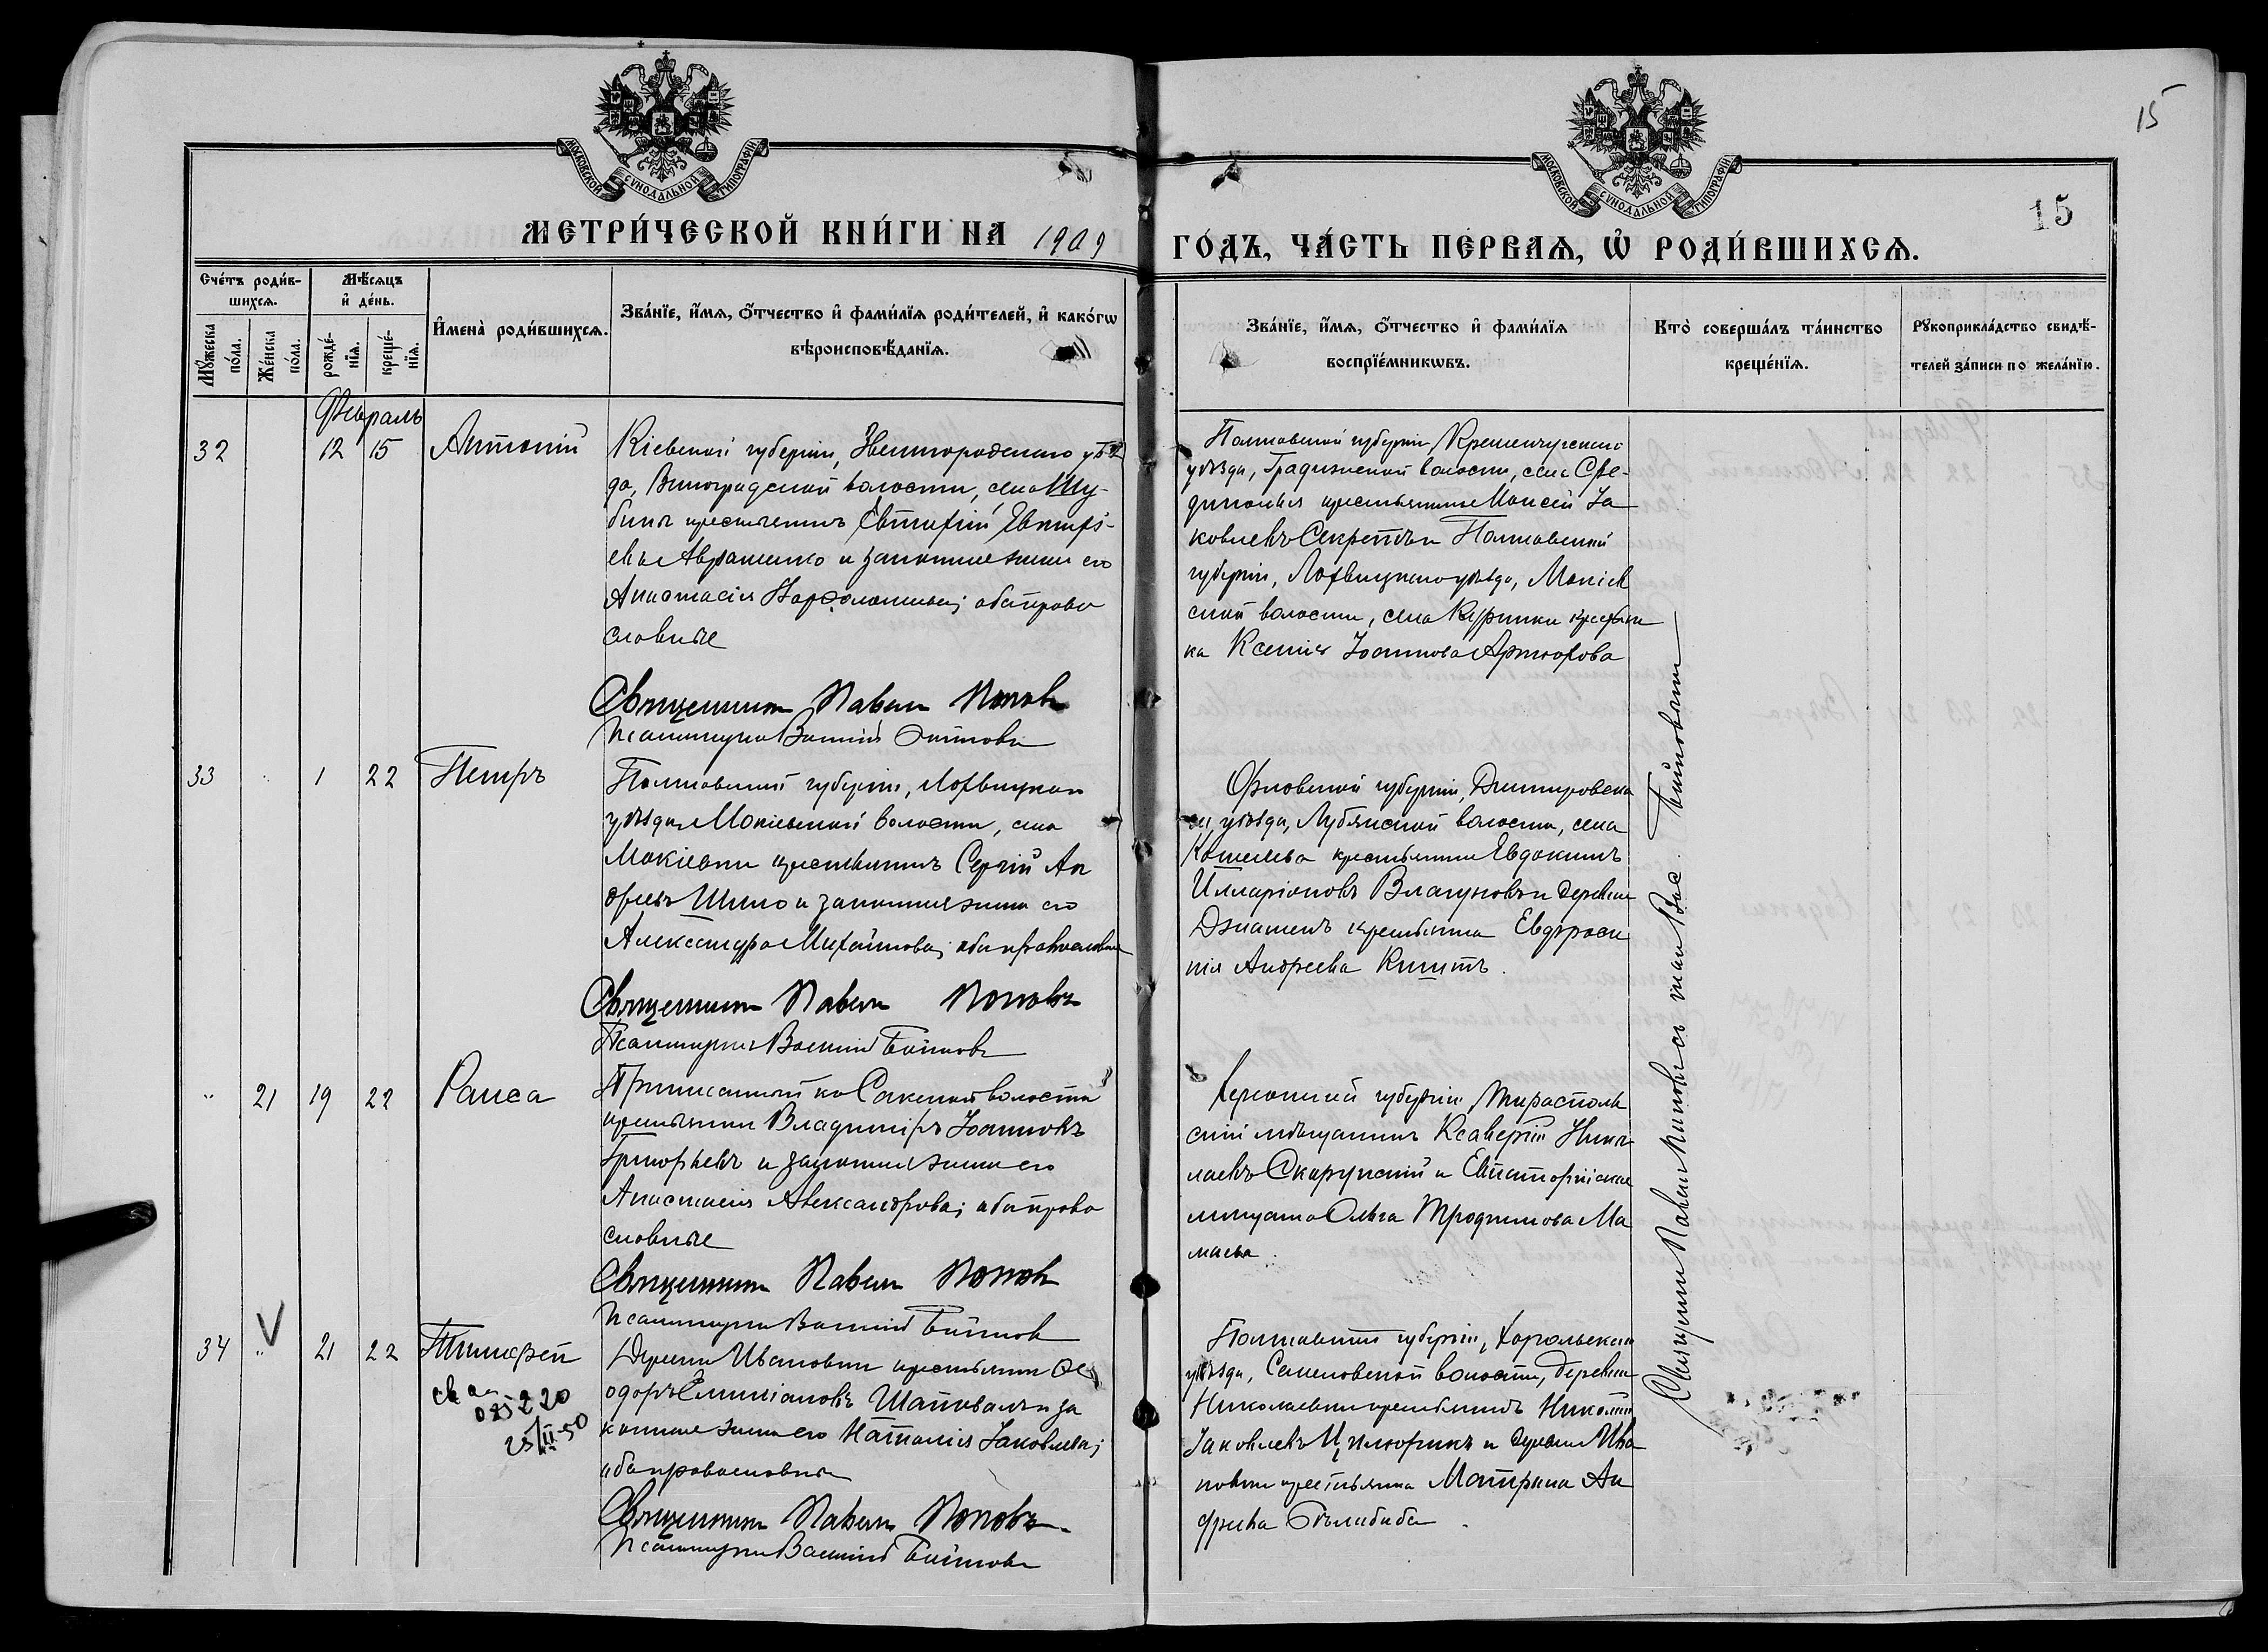 15
МОСКОВСКОЙ СѴНОДАЛЬНОЙ ТИПОГРАФІИ
МОСКОВСКОЙ СѴНОДАЛЬНОЙ ТИПОГРАФІИ
15
МЕТРИ́ЧЕСКОЙ КНИ́ГИ НА 1909
ГО́ДЪ, ЧА́СТЬ ПЕ́РВАѦ, Ѡ҆ РОДИ́ВШИХСѦ.
Сче́тъ роди́в-
шихсѧ.
Мѣ́сѧцъ
и҆ де́нь.
Мꙋ́жеска
по́ла.
Же́нска
по́ла.
рожде́-
нїѧ.
креще́-
нїѧ.
И҆мена̀ роди́вшихсѧ.
Зва́нїе, и҆́мѧ, ѻ҆́тчество и҆ фами́лїѧ роди́телей, и҆ како́гѡ
вѣроисповѣ́данїѧ.
Зва́нїе, и҆́мѧ, ѻ҆́тчество и҆ фами́лїѧ
воспрїе́мникѡвъ.
Кто̀ соверша́лъ та́инство
креще́нїѧ.
Рꙋкоприкла́дство свидѣ́-
телей за́писи по жела́нїю.
Февраль
32 12 15 Антоній
Кіевской губерніи, Звенигородскаго уѣз
да, Виноградской волости, села Шу-
бины крестьянинъ Евтихій Евтихі-
евъ Авраменко и законная жена его
Анастасія Варфоломеева; оба право
славные
Священникъ Павелъ Поповъ
Псаломщикъ Василій
Полтавской губерніи Кременчугскаго
уѣзда, Градижской волости, села
крестьянинъ Моисей Іа
ковлевъ Секретъ и Полтавской
губерніи, Лохвицкаго уѣзда, Мокіев
ской волости, села крестьян
ка Ксенія Іоаннова Артюхова
33 1 22 Петръ
Полтавской губерніи, Лохвицкаго
уѣзда Мокіевской волости, села
Мокіевки крестьянинъ Сергій Ан
дреевъ Шило и законная жена его
Александра Михайлова; оба православные
Священникъ Павелъ Поповъ
Псаломщикъ Василій
Орловской губерніи, Дмитровска
го, уѣзда, Лубянской волости, села
Кошелева крестьянинъ Евдокимъ
Илларіоновъ и деревни
Джаменъ крестьянка Евфроси
нія Андреева
" 21 19 22 Раиса
Приписанный къ Сакской волости
крестьянинъ Владиміръ Іоанновъ
Григорьевъ и законная жена его
Анастасія Александрова; оба право
славные
Священникъ Павелъ Поповъ
Псаломщикъ Василій
Херсонской губерніи Тирасполь
скій мѣщанинъ Ксаверій Нико
лаевъ и Евпаторійская
мѣщанка Ольга Трофимова Ма
маева.
34 V " 21 22 Тимофей
25/II-50
Деревни Ивановки крестьянинъ Ѳе
одоръ Емиліановъ Шаповалъ и за
конная жена его Наталія Іаковлева;
оба православные
Священникъ Павелъ Поповъ
Псаломщикъ Василій
Полтавской губерніи, Хорольскаго
уѣзда, Семеновской волости, деревни
Николаевки крестьянинъ Николай
Іаковлевъ и деревни Ива
новки крестьянка Матрона Ан
дреева
Священникъ Павелъ Поповъ съ псал. Вас.